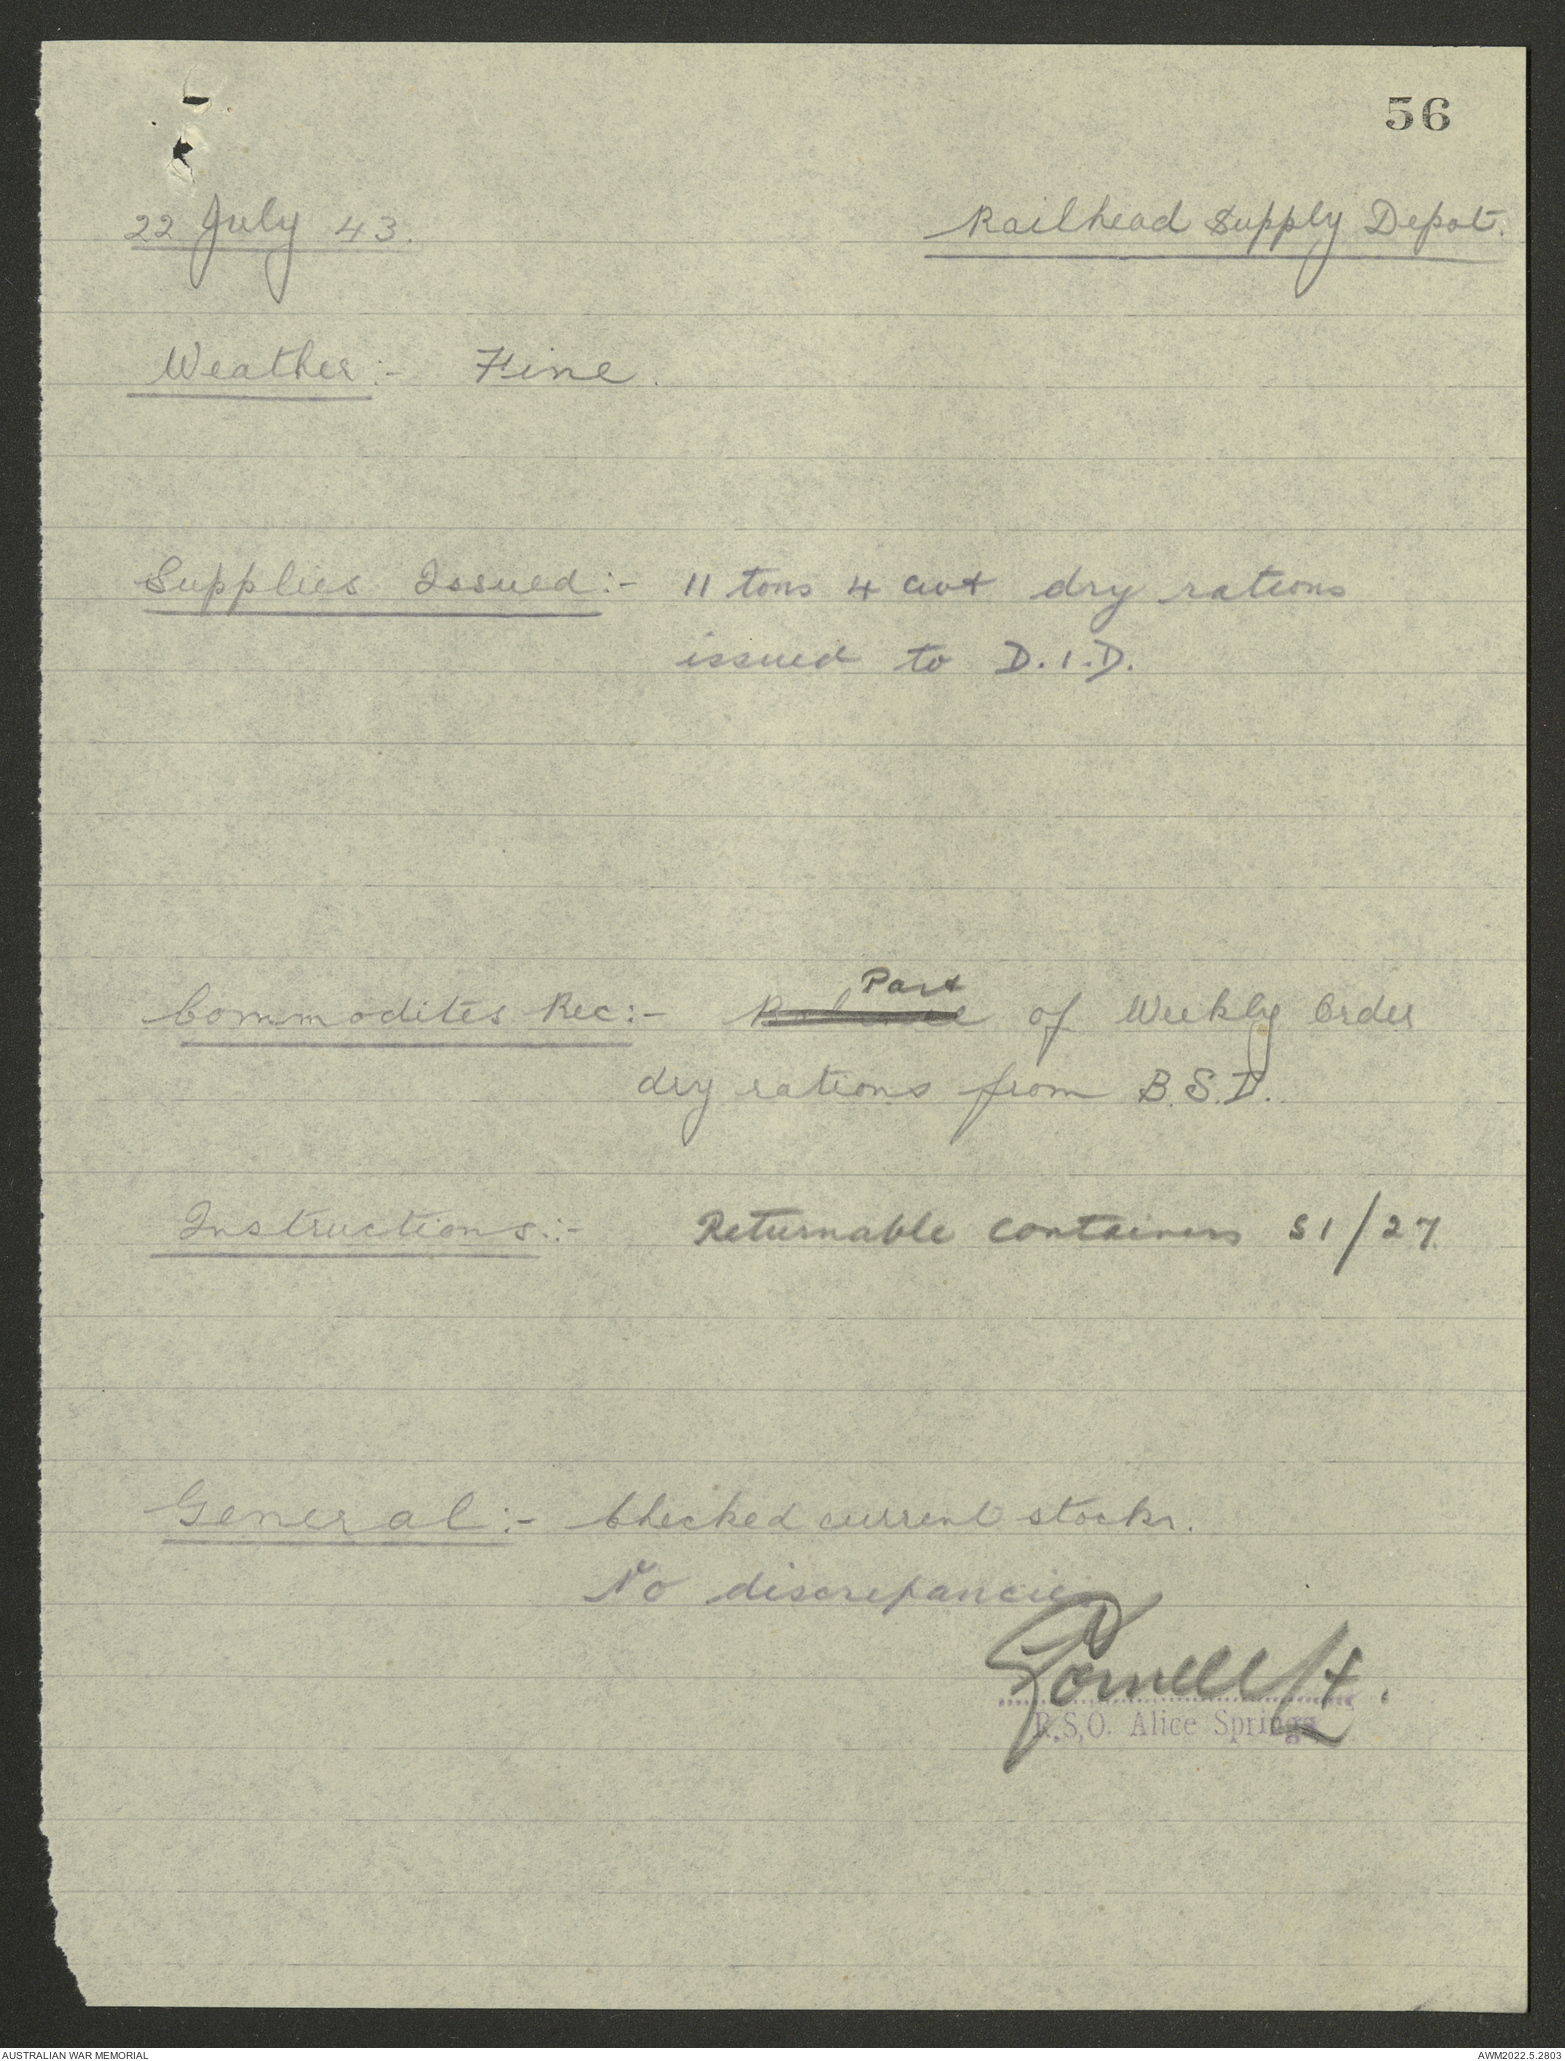 56
22 July 43.
Railhead Supply Depot.
Weather:- Fine.
Supplies Issued:- 11 tons 4 cwt dry rations
issued to D.I.D.
Part
Commodites Rec:- Balance of Weekly Order
dry rations from B.S.D.
Instructions:- Returnable containers S1/27.
General:- Checked current stocks.
No discrepancies
Lt.
R.S.O. Alice Springs
AUSTRALIAN WAR MEMORIAL
AWM2022.5.2803